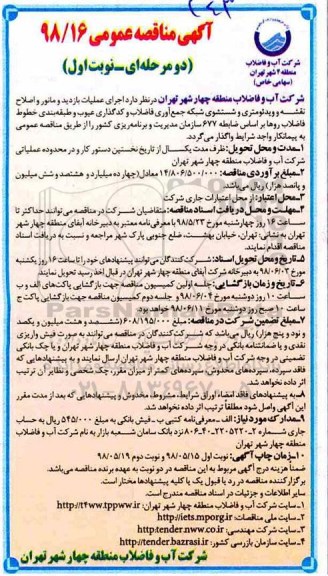 آگهی مناقصه عمومی ۹۸/۱۶
(دو مرحله‌ای_نوبت اول)
شرکت آب و فاضلاب
منطقه ۴ شهر تهران
(سهامی خاص)
شرکت آب و فاضلاب منطقه چهار شهر تهران در نظر دارد اجرای عملیات بازدید و مانور و اصلاح
نقشه و ویدئومتری و شستشوی شبکه جمع‌آوری فاضلاب و کدگذاری عیوب و طبقه‌بندی خطوط
فاضلاب روها بر اساس ضابطه ۶۷۷ سازمان مدیریت و برنامه‌ریزی کشور را از طریق مناقصه عمومی
به پیمانکار واجد شرایط واگذار می‌گردد.
۱_مدت و محل تحویل: ظرف مدت یکسال از تاریخ نخستین دستور کار و در محدوده عملیاتی
شرکت آب و فاضلاب منطقه چهار شهر تهران
۲_مبلغ برآوردی مناقصه: ۱۴/۸۰۶/۵۰۰/۰۰۰ معادل (چهارده میلیارد و هشتصد و شش میلیون
و پانصد هزار) ریال می‌باشد.
۳_محل اعتبار: از محل اعتبارات جاری شرکت
۴_مهلت و محل دریافت اسناد مناقصه: متقاضیان شرکت در مناقصه می‌توانند حداکثر تا
ساعت ۱۶ روز چهارشنبه مورخ ۹۸/۵/۲۳ با معرفی‌نامه معتبر به دبیرخانه آبفای منطقه چهار شهر
تهران به نشانی: تهران، خیابان بهشت، ضلع جنوبی پارک شهر مراجعه و نسبت به دریافت اسناد
مناقصه اقدام نمایند.
۵_تاریخ و محل تحویل اسناد: شرکت‌کنندگان می‌توانند پیشنهادهای خود را تا ساعت ۱۶ روز یکشنبه
مورخ ۹۸/۰۶/۰۳ به دبیرخانه شرکت آبفای منطقه چهار شهر تهران در قبال اخذ رسید تحویل نمایند.
۶_تاریخ و زمان بازگشایی: جلسه اولین کمیسیون مناقصه جهت بازگشایی پاکت‌های الف و ب
ساعت ۱۰ روز دوشنبه مورخ ۹۸/۰۶/۰۴ و جلسه دوم کمیسیون مناقصه جهت بازگشایی پاکت ج
ساعت ۱۰ صبح روز دوشنبه مورخ ۹۸/۰۶/۱۱ خواهد بود.
۷_مبلغ تضمین شرکت در مناقصه: مبلغ ۶۰۸/۱۹۵/۰۰۰ (ششصد و هشت میلیون و یکصد
و نود و پنج هزار) ریال می‌باشد که شرکت‌کنندگان در مناقصه می‌توانند به صورت فیش واریزی
نقدی و یا ضمانتنامه بانکی در وجه شرکت آب و فاضلاب منطقه چهار شهر تهران و یا چک بانکی
تضمینی در وجه شرکت آب و فاضلاب منطقه چهار شهر تهران ارسال نمایند و به پیشنهادهایی که
فاقد سپرده، سپرده‌های مخدوش، سپرده‌های کمتر از میزان مقرر، چک شخصی و نظایر آن ترتیب
اثر داده نخواهد شد.
۸_به پیشنهادهای فاقد امضاء اوراق شرایط، مشروط، مخدوش و پیشنهادهایی که بعد از مدت مقرر
این آگهی واصل شود مطلقاً ترتیب اثر داده نخواهد شد.
۹_مدارک مورد نیاز: الف_معرفی‌نامه کتبی ب_فیش بانکی به مبلغ ۵۴۵/۰۰۰ ریال به حساب
جاری شماره نزد بانک سامان شعبه بازار به نام شرکت آب و فاضلاب
منطقه چهار شهر تهران
۱۰_زمان چاپ آگهی: نوبت اول ۹۸/۰۵/۱۵ و نوبت دوم ۹۸/۰۵/۱۹
ضمناً هزینه درج آگهی مربوط به این مناقصه در دو نوبت به عهده برنده مناقصه می‌باشد.
برگزار کننده مناقصه در رد یا قبول یک یا کلیه پیشنهادها مختار است.
سایر اطلاعات و جزئیات در اسناد مناقصه مندرج است.
۱_سایت شرکت آب و فاضلاب منطقه چهار شهر تهران: http://t4ww.tppww.ir
۲_سایت ملی مناقصات: http://iets.mporg.ir
۳_شرکت مهندسی: http://tender.nww.co.ir
۴_سایت سازمان بازرسی کشور: http://tender.bazrasi.ir
شرکت آب و فاضلاب منطقه چهار شهر تهران